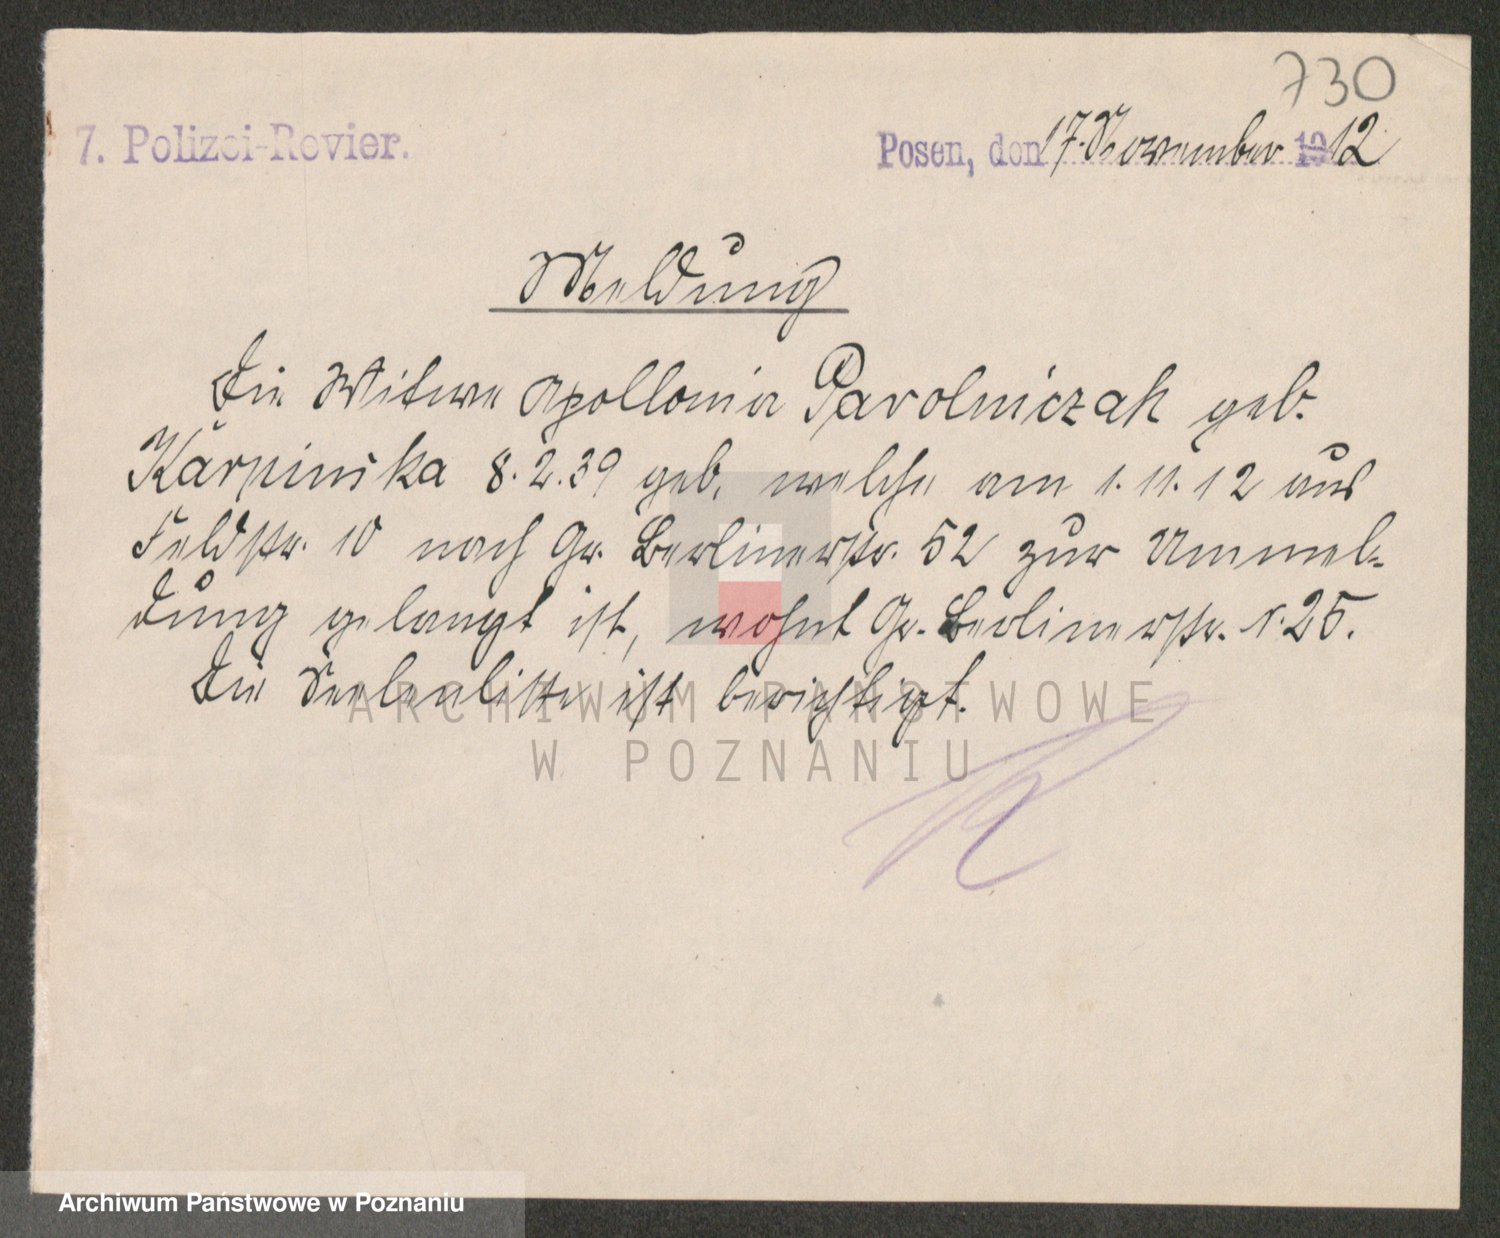 730
7. Polizei-Revier.
Posen, den 17. November 1912
Meldung
Die Witwe Apollonia Parolniczak geb.
Karpinska 8.2.39 geb., welche am 1.11.12 aus
Feldstr. 10 nach Gr. Berlinerstr. 52 zur Ummel-
dung gelangt ist, wohnt Gr. Berlinerstr. N. 25.
Die Seelenliste ist berichtigt.
ARCHIWUM PAŃSTWOWE
W POZNANIU
Archiwum Państwowe w Poznaniu